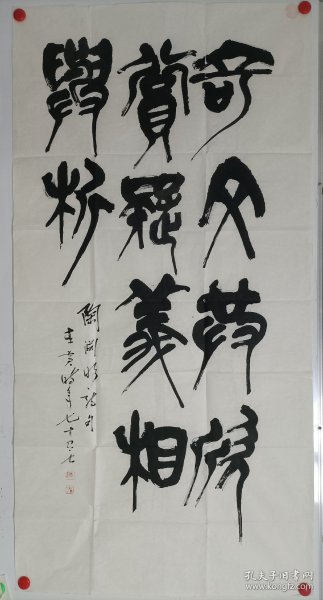 奇文共欣
賞疑義相
與析
陶淵明詩句
時年七十又七
孔夫子旧书网
www.kongfz.com